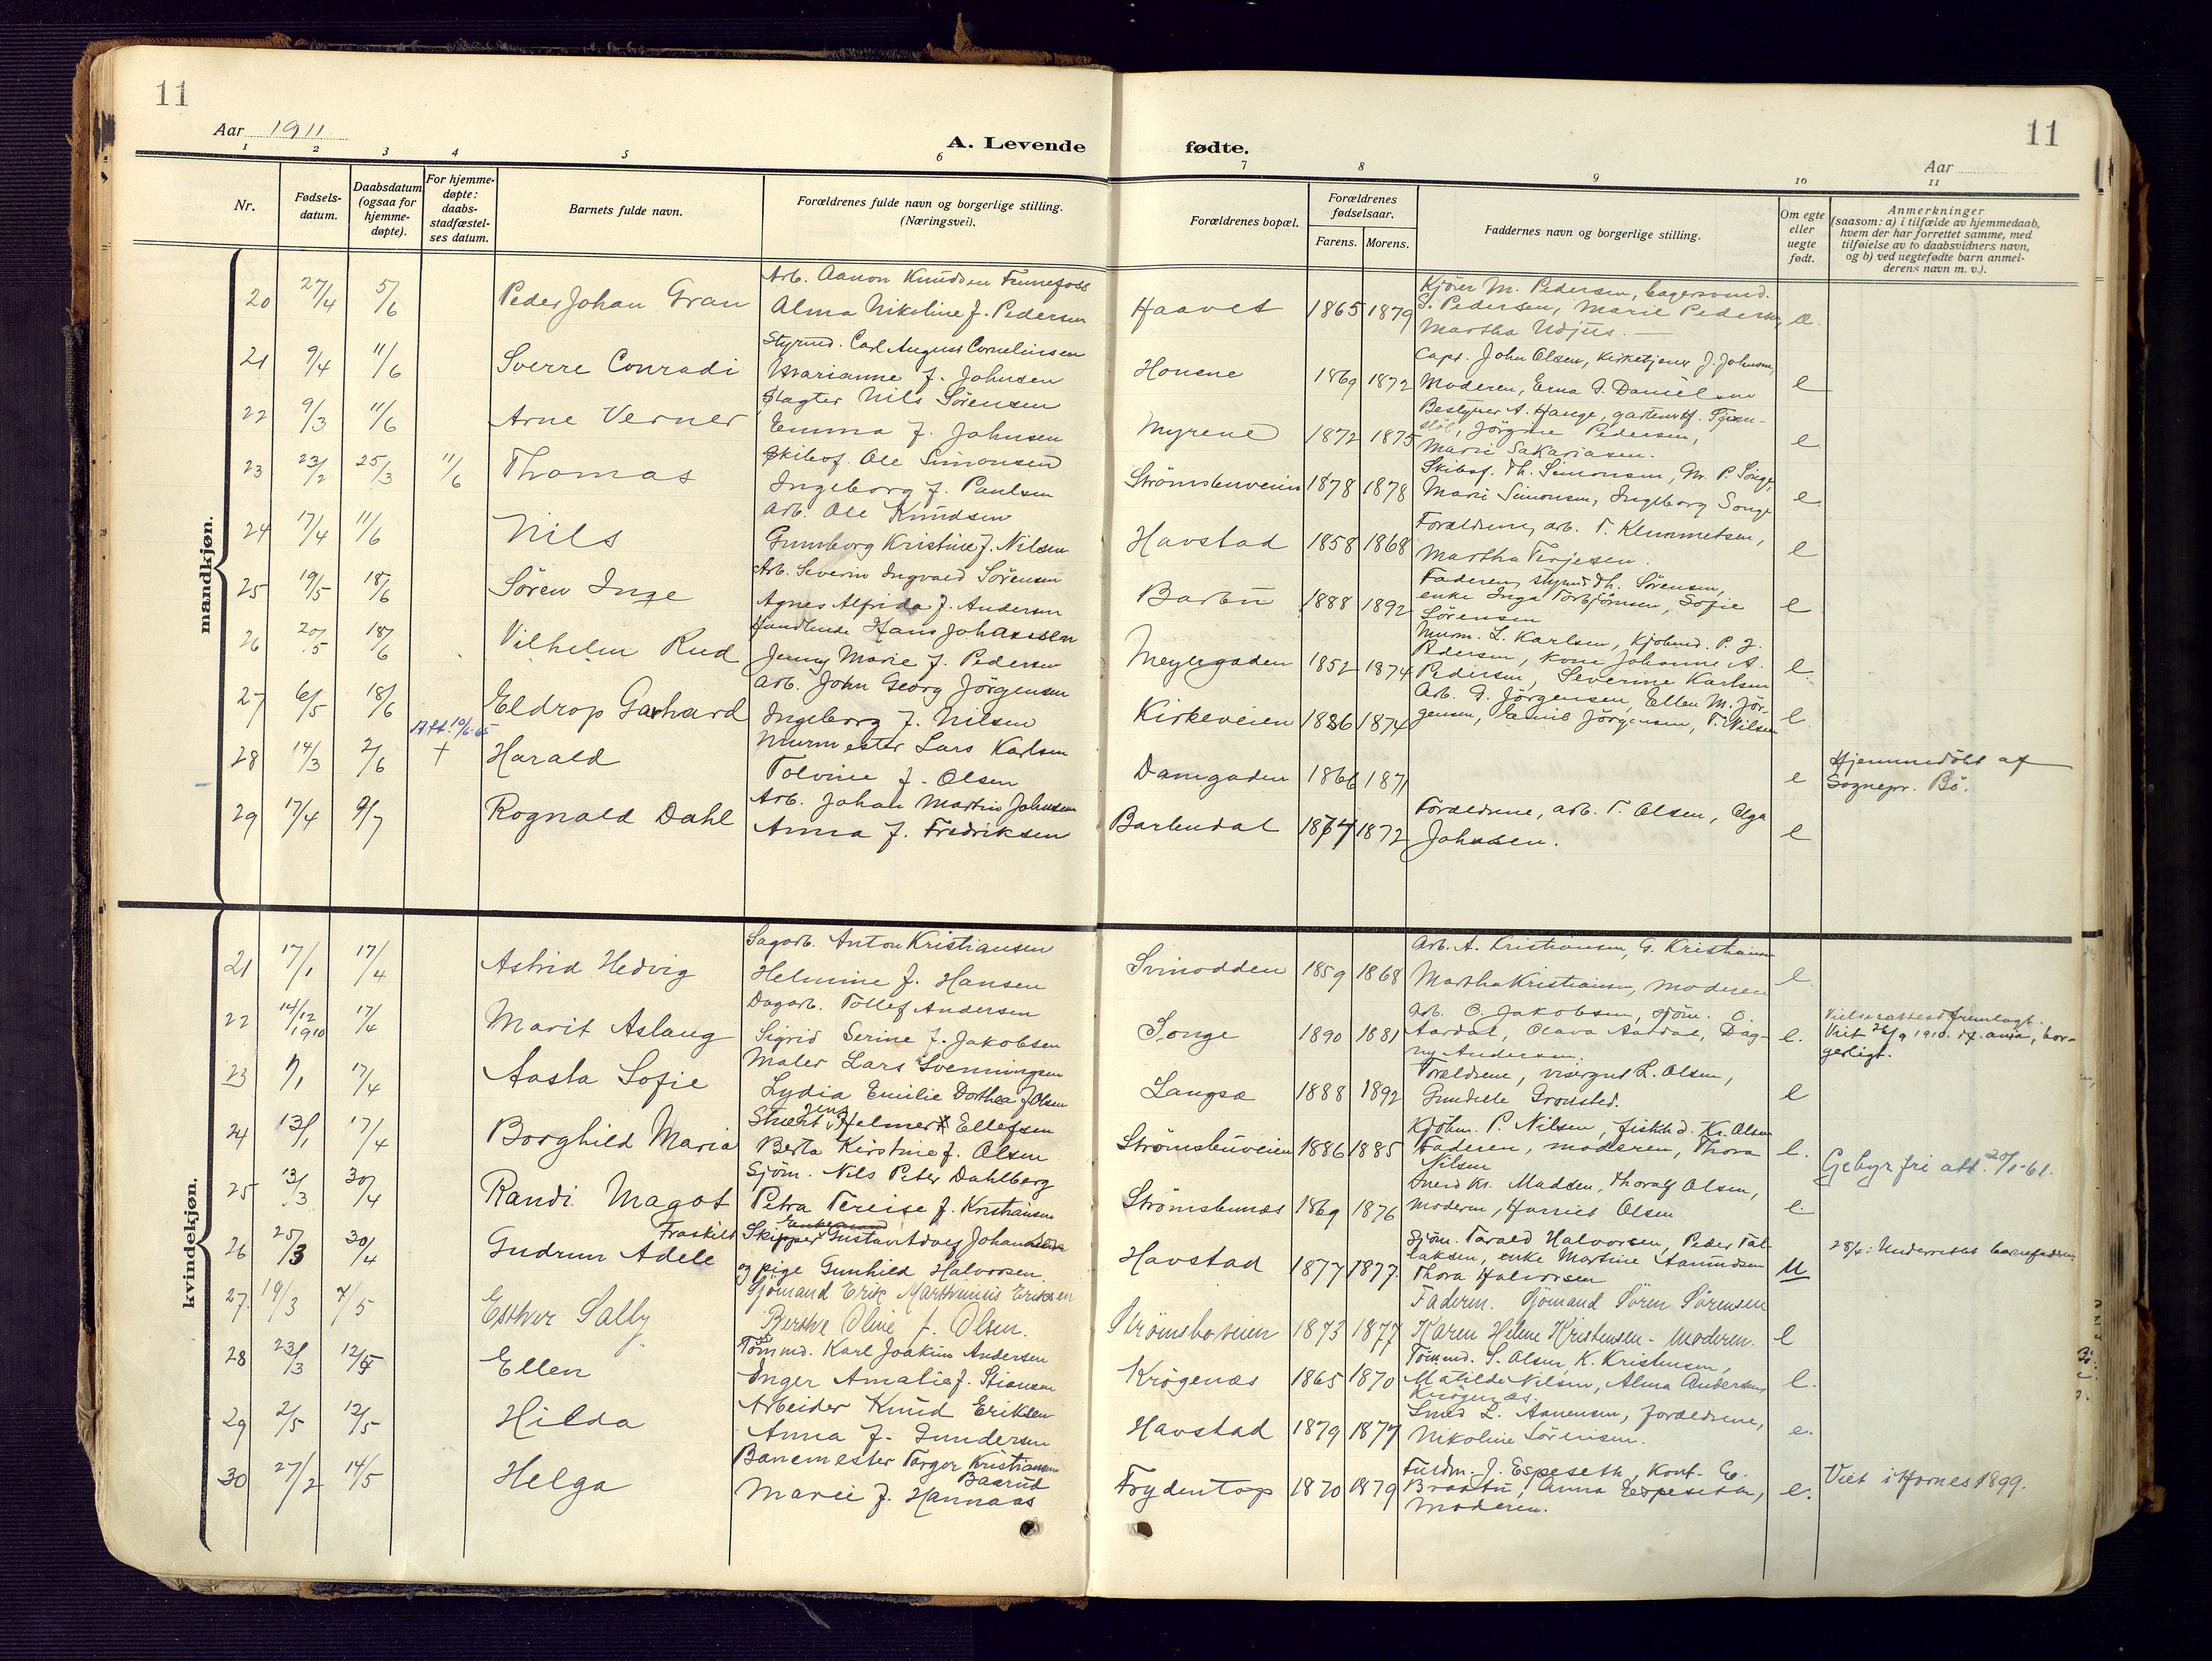 11
11
Aar 1911
A. Levende fødte.
Aar
1 2 3 4 5 6 7 8 9 10 11
Nr.
Fødsels-
datum.
Daabsdatum
(ogsaa for
hjemme-
døpte).
For hjemme-
døpte:
daabs-
stadfæstel-
ses datum.
Barnets fulde navn.
Forældrenes fulde navn og borgerlige stilling.
(Næringsvei).
Forældrenes bopæl.
Forældrenes
fødselsaar.
Farens. Morens.
Faddernes navn og borgerlige stilling.
Om egte
eller
uegte
født.
Anmerkninger
(saasom: a) i tilfælde av hjemmedaab,
hvem der har forrettet samme, med
tilføielse av to daabsvidners navn,
og b) ved uegtefødte barn anmel-
derens navn m. v.).
mandkjøn.
20 27/4 5/6 Peder Johan Gran
Arb. Aanon Knudsen Fennefoss
Alma Nikoline f. Pedersen
Haavet 1865 1879
Kjører M. Pedersen,
S. Pedersen, Marie Pedersen,
Martha Udjus. e.
21 9/4 11/6 Sverre Conradi
Styrmd. Carl August Corneliussen
Marianne f. Johnsen
Houene 1869 1872
Capt. John Olsen, Kirketjener J. Johnsen,
Moderen, Erna G. Danielsen e
22 9/3 11/6 Arne Verner
Slagter Nils Sørensen
Emma f. Johnsen
Myrene 1872 1875
Bestyrer A. Hauge,
Jørgine Pedersen,
Marie Sakariasen. e
23 23/2 25/3 11/6 Thomas
Skibsf. Ole Simonsen
Ingeborg f. Paulsen
Strømsbuveien 1878 1878
Skibsf. Th. Simonsen, Gr. P. Songe,
Marie Simonsen, Ingeborg Songe e
24 17/4 11/6 Nils
Arb. Ole Knudsen
Gunnborg Kristine f. Nilsen
Havstad 1858 1868
Forældrene, arb. T. Klemmetsen,
Martha Terjesen. e
25 19/5 18/6 Søren Inge
Arb. Severin Ingvald Sørensen
Agnes Alfrida f. Andersen
Barbu 1888 1892
Faderen, styrmd Th. Sørensen,
enke Inga Torbjørnsen, Sofie
Sørensen e
26 20/5 18/6 Vilhelm Rud
Handlende Hans Johansen
Jenny Marie f. Pedersen
Meyergaden 1852 1874
Murm. L. Karlsen, Kjøbmd. P. J.
Pedersen, Kone Johanne A.
Pedersen, Severine Karlsen e.
27 6/5 18/6 Eldrop Gerhard
Arb. John Georg Jørgensen
Ingeborg f. Nilsen
Kirkeveien 1886 1874
Arb. G. Jørgensen, Ellen M. Jør-
gensen, Emil Jørgensen, T. Nilsen e.
Att. 10/6-65
28 14/3 2/6 + Harald
Murmester Lars Karlsen
Tolvine f. Olsen
Damgaden 1866 1871 e
Hjemmedøbt af
Sognepr. Bö.
29 17/4 9/7 Rognald Dahl
Arb. Johan Martin Johnsen
Anna f. Fredriksen
Barbudal 1877 1872
Forældrene, arb. T. Olsen, Olga
Johnsen. e
kvindekjøn.
21 17/1 17/4 Astrid Hedvig
Sagarb. Anton Kristiansen
Helmine f. Hansen
Svinodden 1859 1868
Arb. A. Kristiansen, G. Kristiansen
Martha Kristiansen, moderen e.
22 14/12 1910 17/4 Marit Aslaug
Dagarb. Tollef Andersen
Sigrid Serine f. Jakobsen
Songe 1890 1881
Arb. O. Jakobsen, sjöm. O.
Aardal, Olava Aardal, Dag-
ny Andersen. e.
Vielsesattest fremlagt.
Viet 26/9 1910. bor-
gerligt.
23 1/1 17/4 Aasta Sofie
Maler Lars Svenningsen
Lydia Emilie Dorthea f. Olsen
Langsæ 1888 1892
Forældrene, visergut L. Olsen,
Grønsted. e
24 13/1 17/4 Borghild Maria
Jens
Helmert Ellefsen
Berta Kirstine f. Olsen
Strømsbuveien 1886 1885
Kjöbm. P. Nilsen, fiskhd. Kr. Olsen
Faderen, moderen, Thora
Nilsen e.
Gebyrfri att. 20/1-61.
25 13/3 30/4 Randi Magot
Sjöm. Nils Peter Dahlberg
Petra Tereise f. Kristiansen
Strømsbunæs 1869 1876
Smed Kr. Madsen, Thoralf Olsen,
moderen, Harriet Olsen e.
Fraskilt
26 25/3 30/4 Gudrun Adele
Enkemand
Skipper Gustav Adolf Johannesen
og pige Gunhild Halvorsen.
Havstad 1877 1877
Sjöm. Tarald Halvorsen, Peder Tal-
laksen, enke Martine Aanundsen
Thora Halvorsen u
28/4: Underrettet barnefaderen
27. 19/3 7/5 Esther Sally
Sjömand Erik Marthinius Eriksen
Berthe Oline f. Olsen.
Strömsboveien 1873 1877
Faderen. Sjömand Sören Sörensen
Karen Helene Kristensen - Moderen. e
28 23/3 12/5 Ellen
Tömmd. Karl Joakim Andersen
Inger Amalie f. Stiansen
Krögenæs 1865 1870
Tömmd. S. Olsen, K. Kristensen,
Matilde Nilsen, Alma Andersen,
Krögenæs. e.
29 2/5 12/5 Hilda
Arbeider Knud Eriksen
Anna f. Gundersen
Havstad 1879 1877
Smed L. Aanensen, forældrene,
Nikoline Sörensen. e.
30 27/2 14/5 Helga
Banemester Targer Kristiansen
Baarud
Marie f. Hannaas
Frydentop 1870 1879
Fuldm. J. Espeseth, Kont. E.
Braatu, Anna Espeseth,
Moderen. e.
Viet i Hornes 1899.